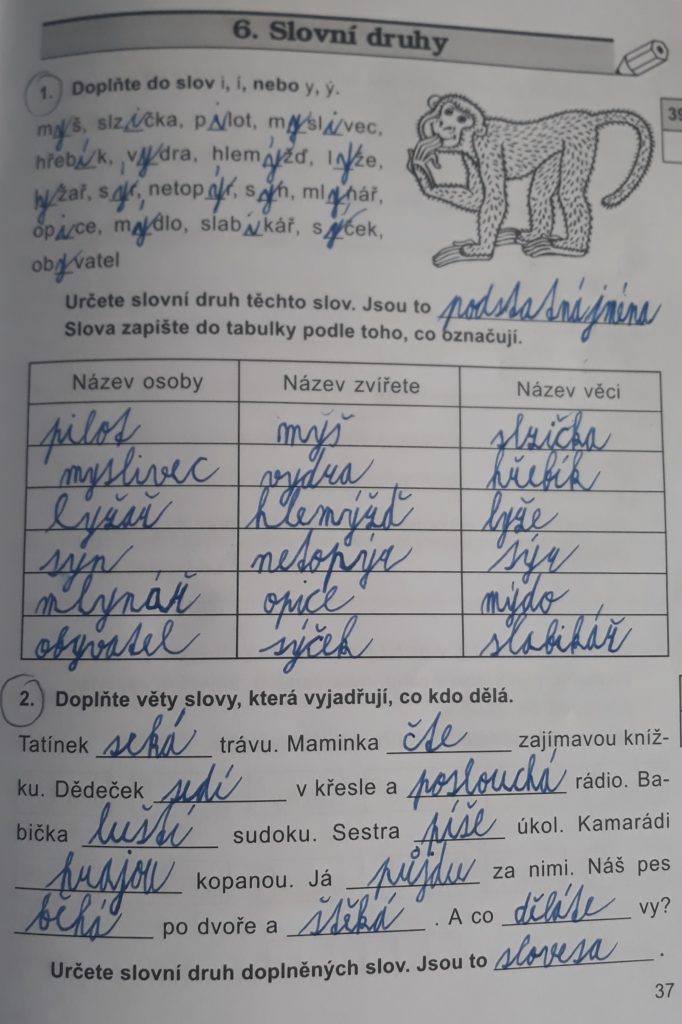 6. Slovní druhy
1. Doplňte do slov i, í, nebo y, ý.
39
myš, slzička, pilot, myslivec,
hřebík, vydra, hlemýžď, lyže,
lyžař, sýr, netopýr, syn, mlynář,
opice, mýdlo, slabikář, sýček,
obyvatel
Určete slovní druh těchto slov. Jsou to podstatná jména
Slova zapište do tabulky podle toho, co označují.
Název osoby Název zvířete Název věci
pilot myš slzička
myslivec vydra hřebík
lyžař hlemýžď lyže
syn netopýr sýr
mlynář opice mýdo
obyvatel sýček slabikář
2. Doplňte věty slovy, která vyjadřují, co kdo dělá.
Tatínek seká trávu. Maminka čte zajímavou kníž-
ku. Dědeček sedí v křesle a poslouchá rádio. Ba-
bička luští sudoku. Sestra píše úkol. Kamarádi
hrajou kopanou. Já půjdu za nimi. Náš pes
běhá po dvoře a štěká. A co děláte vy?
Určete slovní druh doplněných slov. Jsou to slovesa.
37